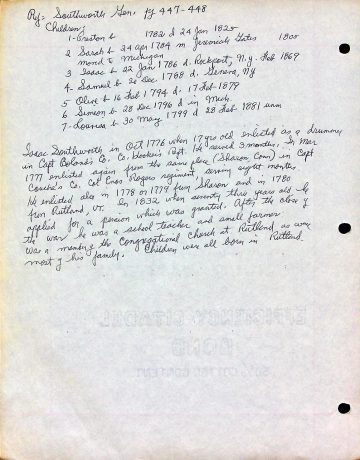 Ref: Southworth Gen. pg 447-448
Children;
1- b 1782 d 24 Jan 1825
2 Sarah b 24 apr 1784 m Jeremiah Gates 1800
moved to Michigan
3 Isaac b 22 Jan 1786 d. Rockport, N.y. Feb 1869
4 Samuel b 26 Dec 1788 d. Geneva, Ny
5 Olive b 16 Feb 1794 d. 17 Feb 1879
6 Simeon b 28 Dec 1796 d in Mich.
7- b 30 May 1799 d 28 Feb 1881 unm
Isaac Southworth in Oct 1776 when 17 yrs old enlisted as a drummer
in Capt Co. Co. Regt. He served 3 months. In Mar
1777 enlisted again from the same place (Sharon, Conn) in Capt
Co. Col regiment, serving eight months
He enlisted also in 1778 or 1779 from Sharon and in 1780
from Rutland, Vt. In 1832 when seventy three years old he
applied for a pension which was granted. After the close of
the war he was a school teacher and small farmer
was a member of the Congregational Church at Rutland as were
most of his family. Children were all born in Rutland.
BOND